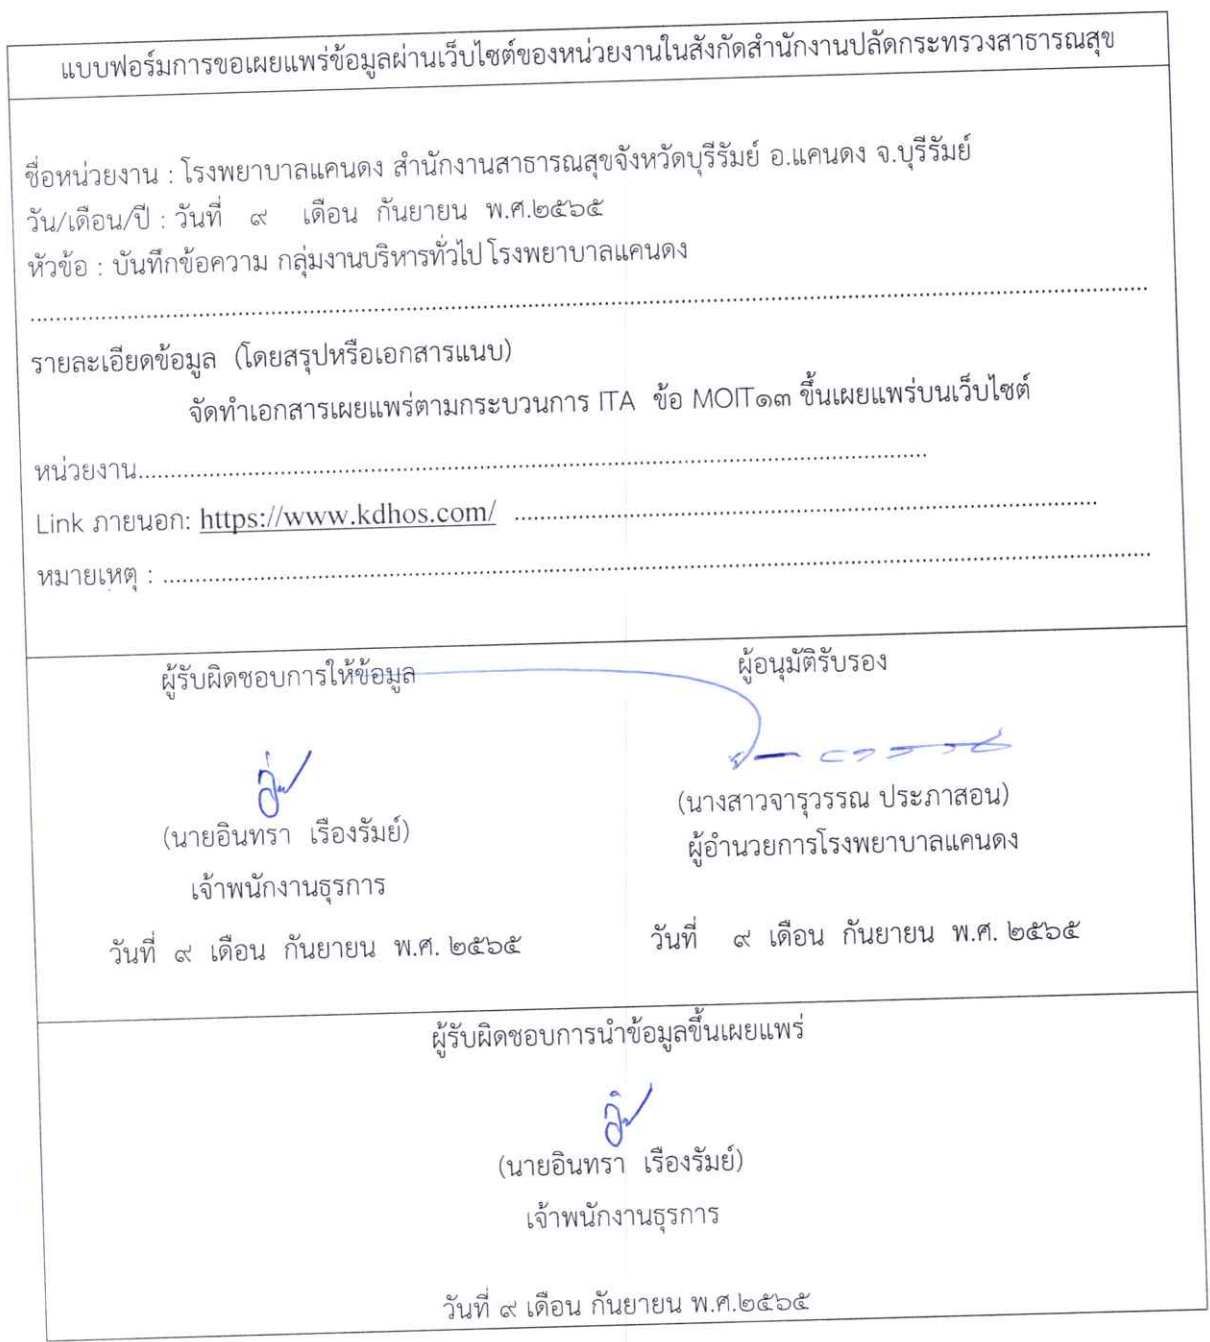 แบบฟอร์มการขอเผยแพร่ข้อมูลผ่านเว็บไซต์ของหน่วยงานในสังกัดสำนักงานปลัดกระทรวงสาธารณสุข
ชื่อหน่วยงาน : โรงพยาบาลแคนดง สำนักงานสาธารณสุขจังหวัดบุรีรัมย์ อ.แคนดง จ.บุรีรัมย์
วัน/เดือน/ปี : วันที่ ๙ เดือน กันยายน พ.ศ.๒๕๖๕
หัวข้อ : บันทึกข้อความ กลุ่มงานบริหารทั่วไป โรงพยาบาลแคนดง
รายละเอียดข้อมูล (โดยสรุปหรือเอกสารแนบ)
จัดทำเอกสารเผยแพร่ตามกระบวนการ ITA ข้อ MOIT๑๓ ขึ้นเผยแพร่บนเว็บไซต์
หน่วยงาน..........
Link ภายนอก: https://www.kdhos.com/ ..........
หมายเหตุ : ..........
ผู้รับผิดชอบการให้ข้อมูล ผู้อนุมัติรับรอง
(นายอินทรา เรืองรัมย์) (นางสาวจารุวรรณ ประภาสอน)
เจ้าพนักงานธุรการ ผู้อำนวยการโรงพยาบาลแคนดง
วันที่ ๙ เดือน กันยายน พ.ศ. ๒๕๖๕ วันที่ ๙ เดือน กันยายน พ.ศ. ๒๕๖๕
ผู้รับผิดชอบการนำข้อมูลขึ้นเผยแพร่
(นายอินทรา เรืองรัมย์)
เจ้าพนักงานธุรการ
วันที่ ๙ เดือน กันยายน พ.ศ.๒๕๖๕